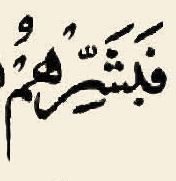 فَبَشِّرْهُمْ